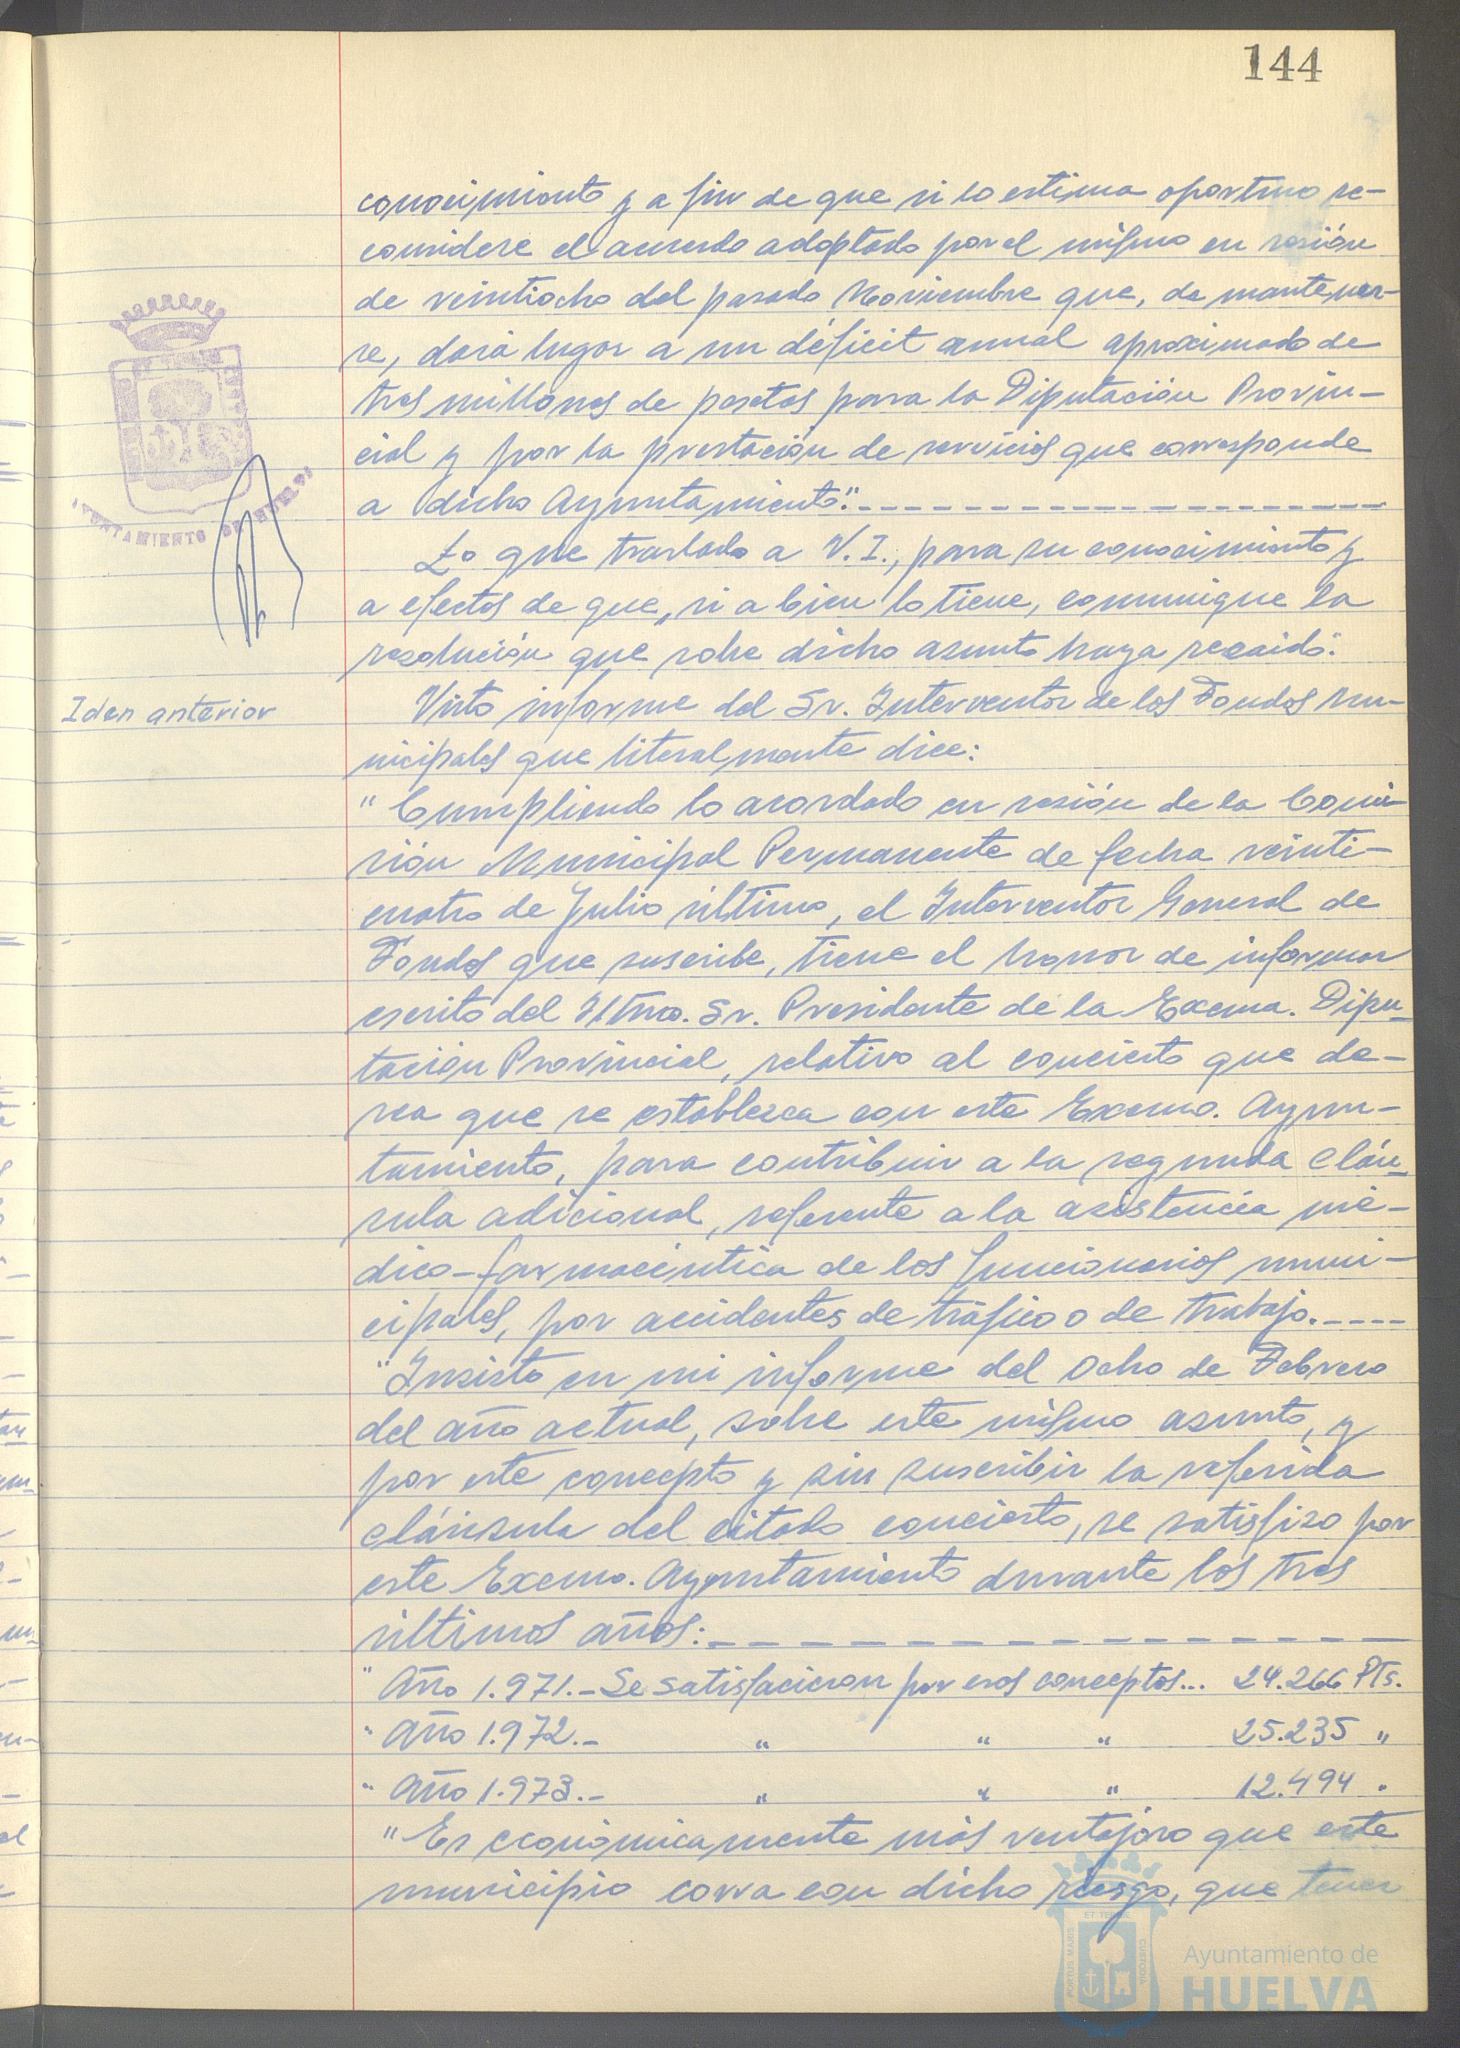 144
conocimiento y a fin de que si lo estima oportuno re-
considere el acuerdo adoptado por el mismo en sesión
de veintiocho del pasado Noviembre que, de mantener-
se, dará lugar a un déficit anual aproximado de
tres millones de pesetas para la Diputación Provin-
cial y por la prestación de servicios que corresponde
a dicho Ayuntamiento".
AYUNTAMIENTO DE HUELVA
Lo que traslado a V.I., para su conocimiento y
a efectos de que, si a bien lo tiene, comunique la
resolución que sobre dicho asunto haya recaido".
Iden anterior
Visto informe del Sr. Interventor de los Fondos Mu-
nicipales que literalmente dice:
"Cumpliendo lo acordado en sesión de la Comi-
sión Municipal Permanente de fecha veinti-
cuatro de Julio último, el Interventor General de
Fondos que suscribe, tiene el honor de informar
escrito del Iltmo. Sr. Presidente de la Excma. Dipu-
tación Provincial, relativo al concierto que de-
sea que se establezca con este Excmo. Ayun-
tamiento, para contribuir a la segunda cláu-
sula adicional, referente a la asistencia mé-
dico-farmacéutica de los funcionarios muni-
cipales, por accidentes de tráfico o de trabajo.----
"Insisto en mi informe del ocho de Febrero
del año actual, sobre este mismo asunto, y
por este concepto y sin suscribir la referida
cláusula del citado concierto, se satisfizo por
este Excmo. Ayuntamiento durante los tres
últimos años:
" Año 1.971.- Se satisfacicron por esos conceptos... 24.266 Pts.
" Año 1.972.- " " " 25.235 "
" Año 1.973.- " " " 12.494 "
"Es económicamente más ventajoso que este
municipio corra con dicho riesgo, que tener
ET TERRAE
PORTUS MARIS
CUSTODIA
Ayuntamiento de
HUELVA